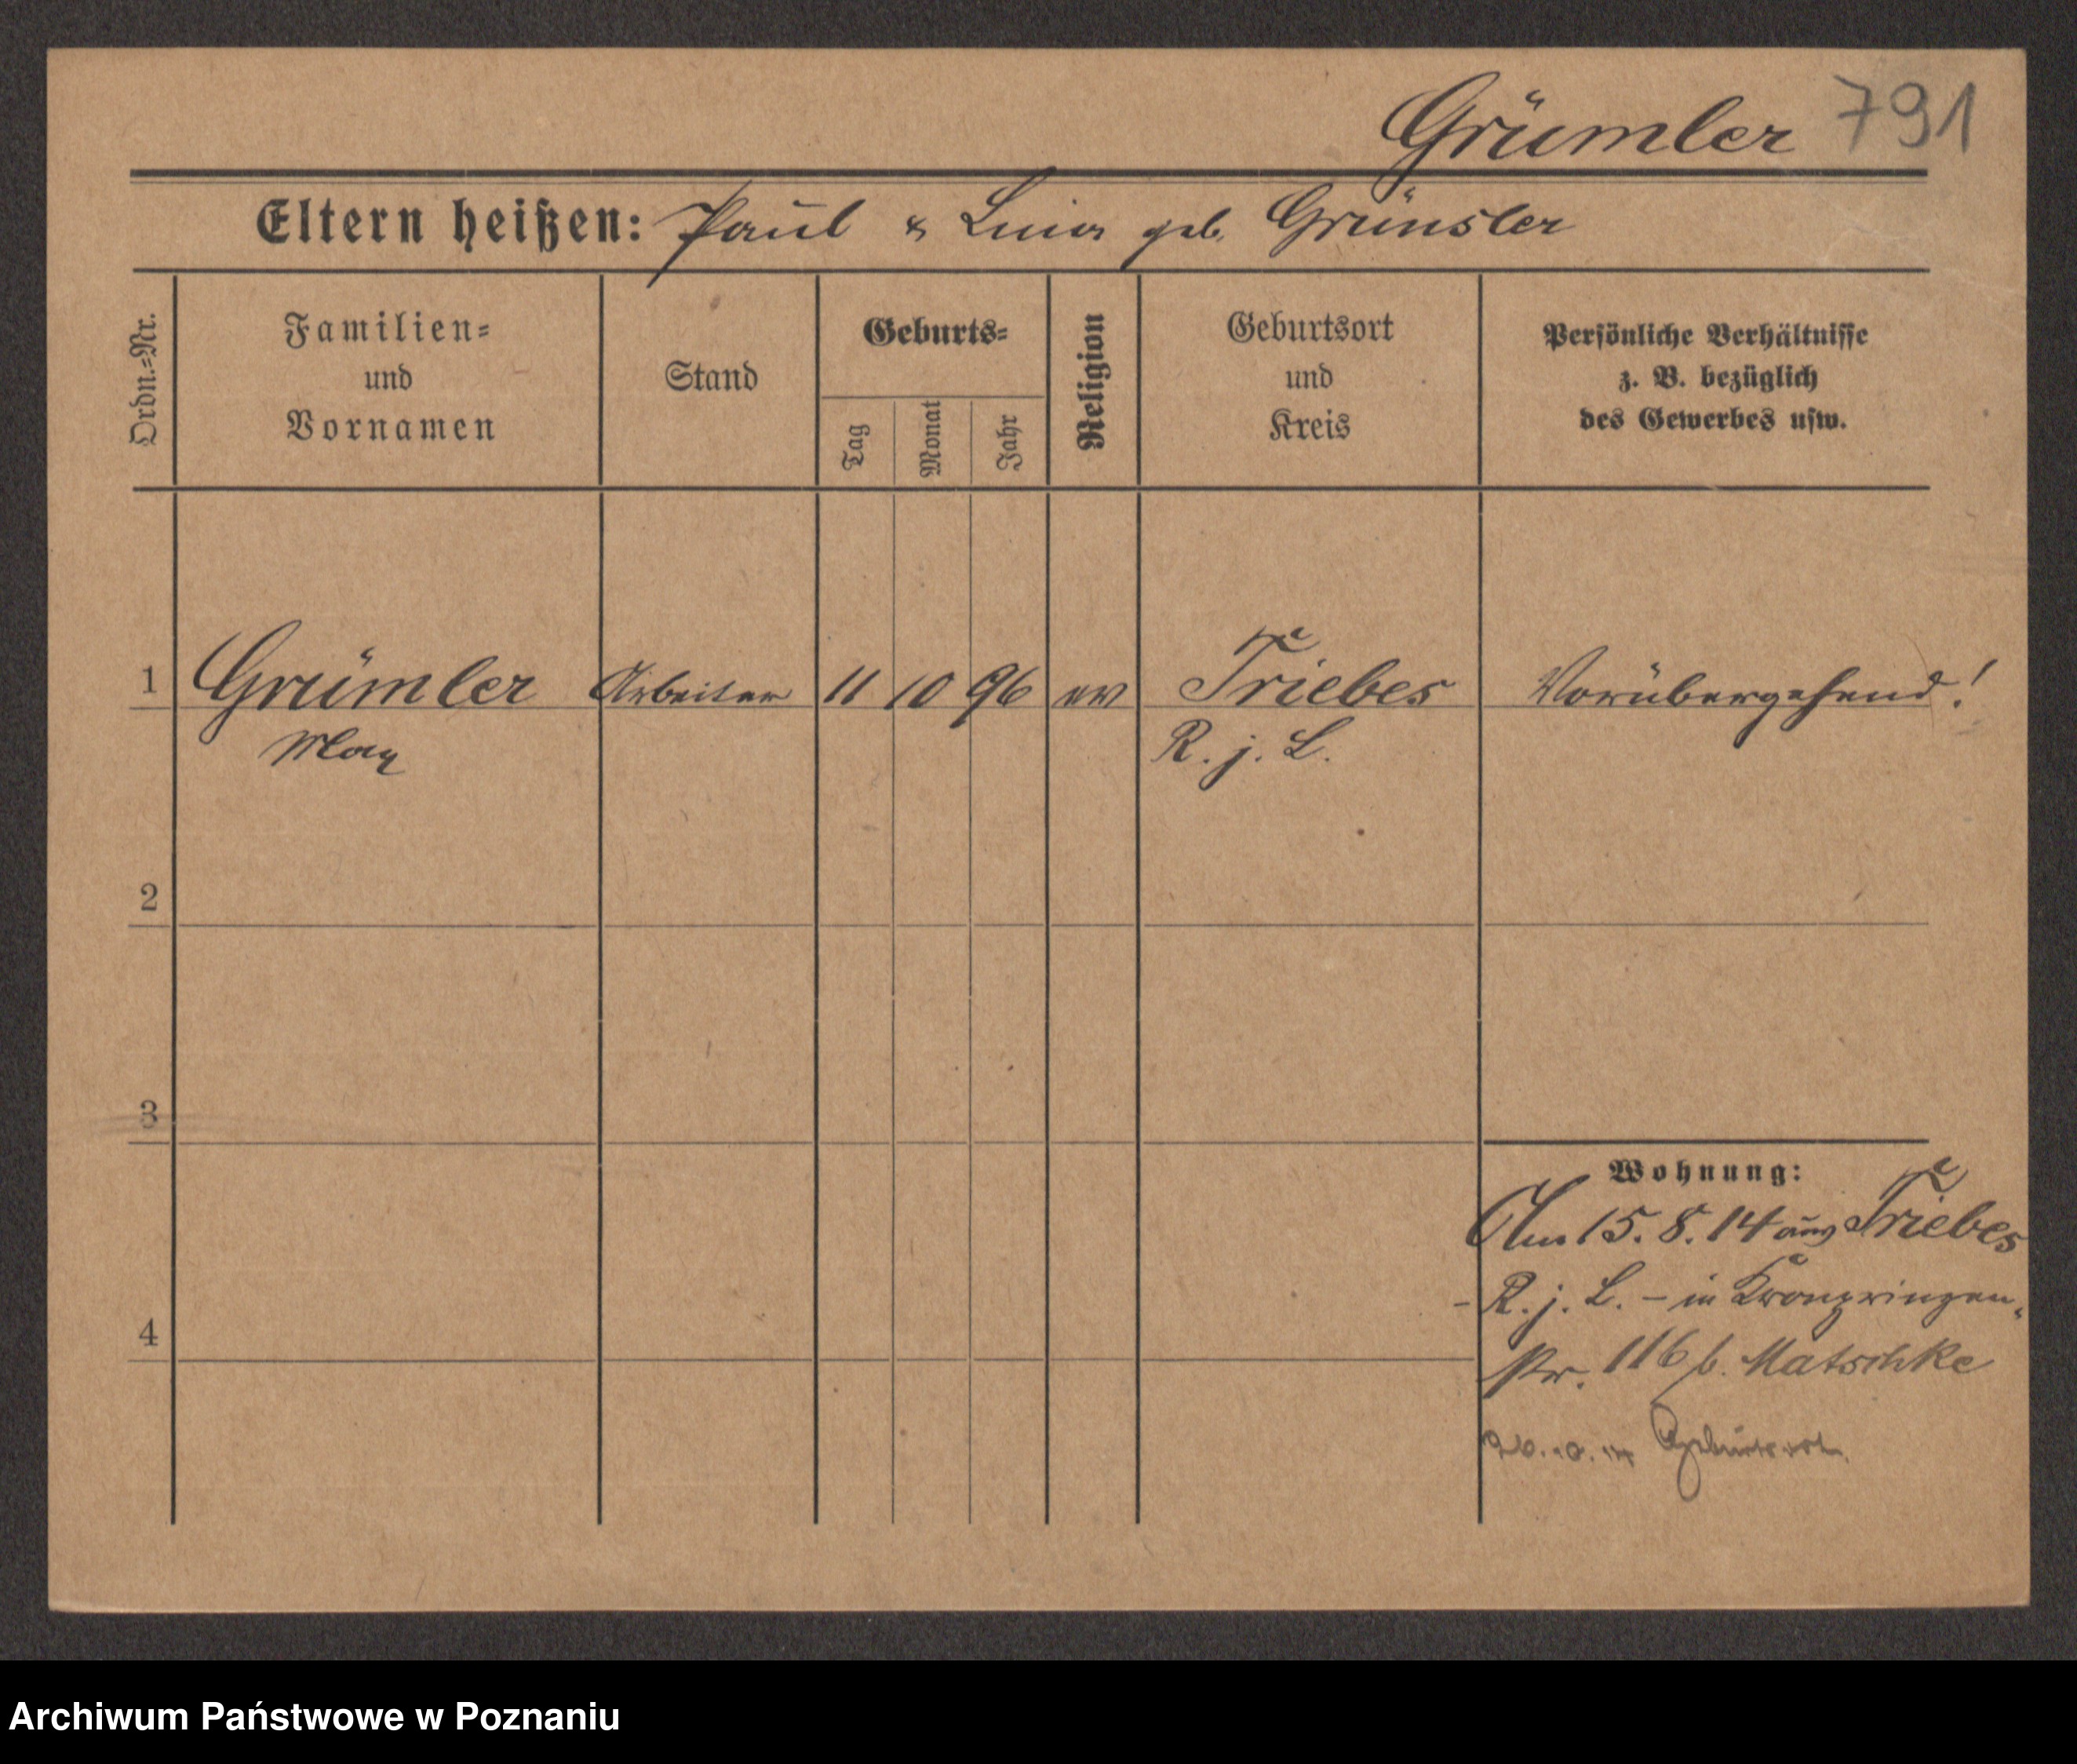 Grümler 791
Eltern heißen: Paul & Lina geb. Grünsler
Ordn.-Nr.
Familien-
und
Vornamen
Stand
Geburts-
Tag
Monat
Jahr
Religion
Geburtsort
und
Kreis
Persönliche Verhältnisse
z. B. bezüglich
des Gewerbes usw.
1 Grümler Arbeiter 11 10 96 ev Triebes Vorübergehend!
Max R. j. L.
2
3
Wohnung:
Am 15. 8. 14 aus Triebes
- R. j. L. - in Kronprinzen-
4
str. 116 b. Matschke
Geburtsort.
Archiwum Państwowe w Poznaniu